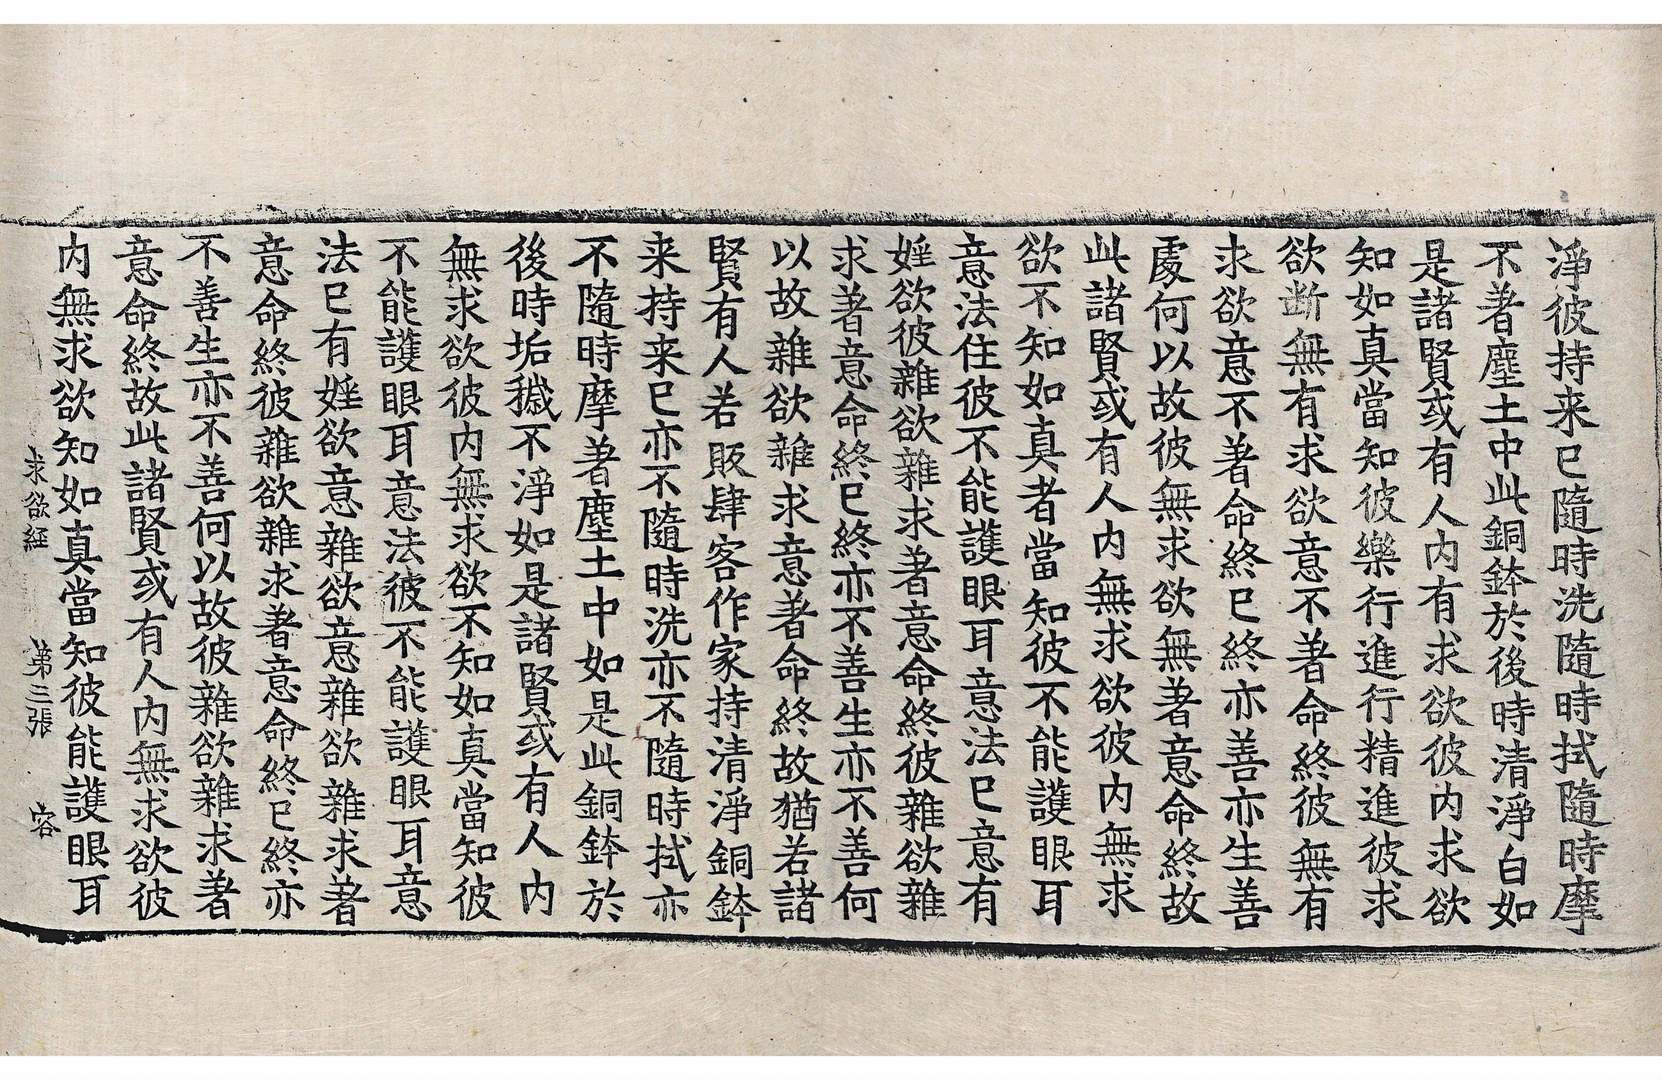 淨彼持来已隨時洗隨時拭隨時摩
不著塵土中此銅鉢於後時清淨白如
是諸賢或有人内有求欲彼内求欲
知如真當知彼樂行進行精進彼求
欲断無有求欲意不著命終彼無有
求欲意不著命終已終亦善亦生善
處何以故彼無求欲無著意命終故
此諸賢或有人内無求欲彼内無求
欲不知如真者當知彼不能護眼耳
意法住彼不能護眼耳意法已意有
婬欲彼雜欲雜求著意命終彼雜欲雜
求著意命終已終亦不善生亦不善何
以故雜欲雜求意著命終故猶若諸
賢有人若販肆客作家持清淨銅鉢
来持来已亦不隨時洗亦不隨時拭亦
不隨時摩著塵土中如是此銅鉢於
後時垢穢不淨如是諸賢或有人内
無求欲彼内無求欲不知如真當知彼
不能護眼耳意法彼不能護眼耳意
法已有婬欲意雜欲意雜欲雜求著
意命終彼雜欲雜求著意命終已終亦
不善生亦不善何以故彼雜欲雜求著
意命終故此諸賢或有人内無求欲彼
内無求欲知如真當知彼能護眼耳
求欲經 第三張 容